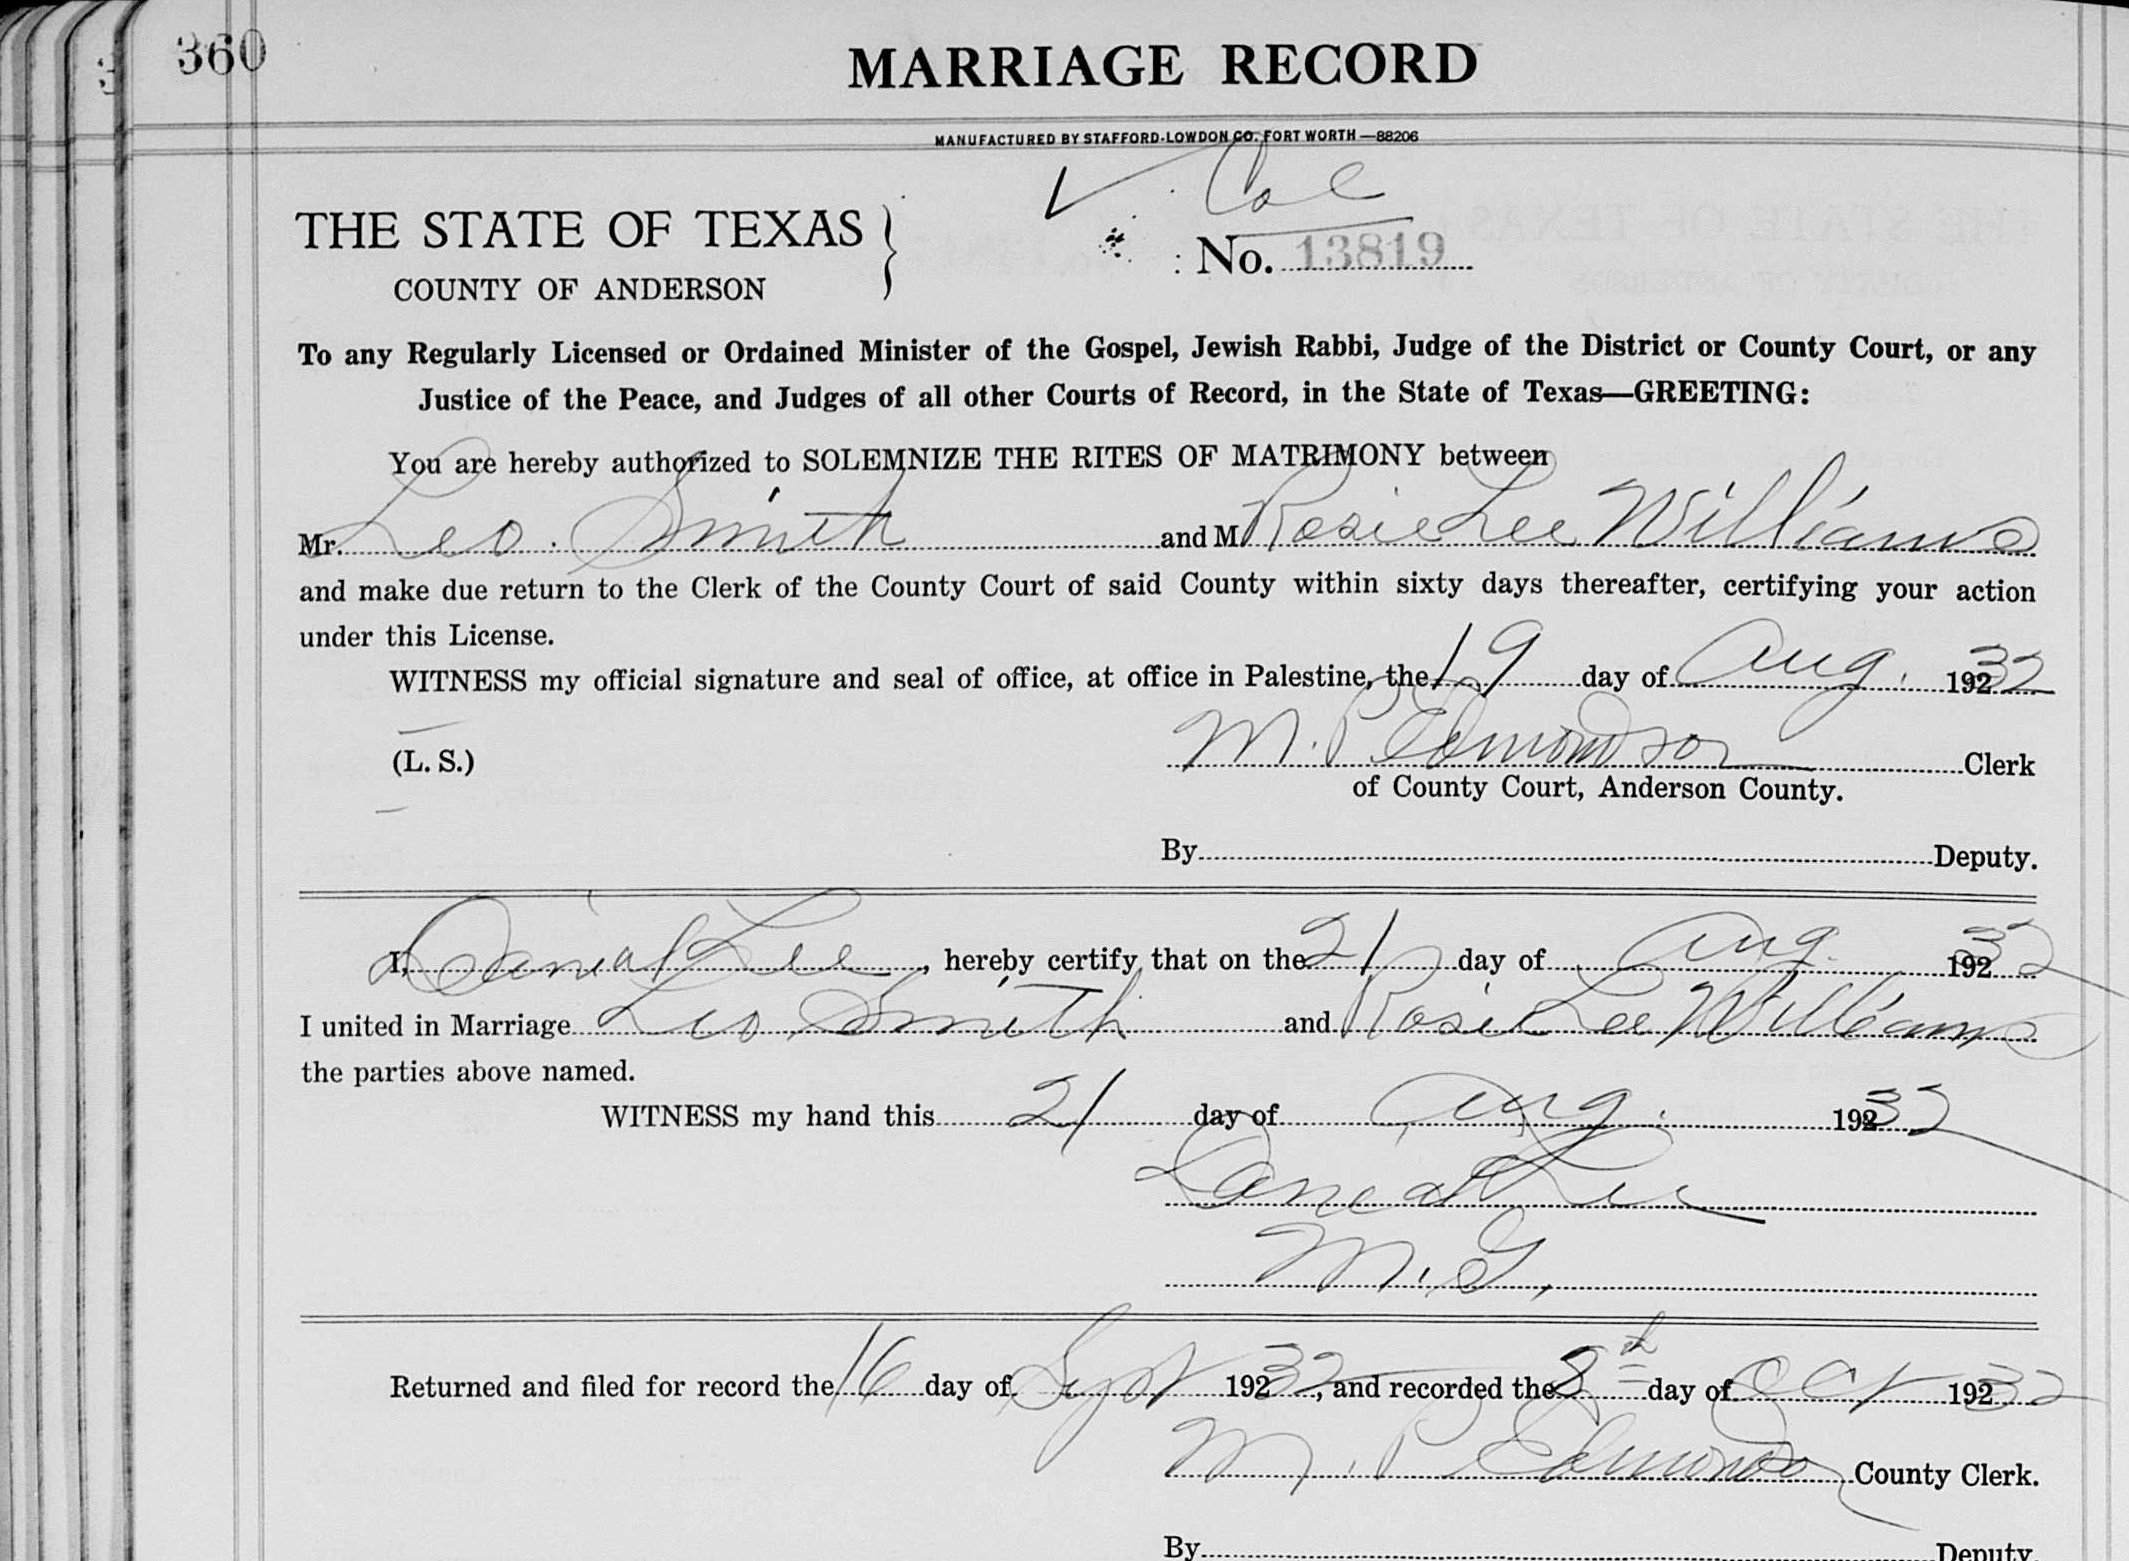 360
MARRIAGE RECORD
MANUFACTURED BY STAFFORD-LOWDON CO. FORT WORTH—88206
Col
THE STATE OF TEXAS }
No. 13819
COUNTY OF ANDERSON
To any Regularly Licensed or Ordained Minister of the Gospel, Jewish Rabbi, Judge of the District or County Court, or any
Justice of the Peace, and Judges of all other Courts of Record, in the State of Texas—GREETING:
You are hereby authorized to SOLEMNIZE THE RITES OF MATRIMONY between
Mr. Leo Smith and M Rosie Lee Williams
and make due return to the Clerk of the County Court of said County within sixty days thereafter, certifying your action
under this License.
WITNESS my official signature and seal of office, at office in Palestine, the 19 day of Aug. 1932
(L. S.) M. P. Edmondson Clerk
of County Court, Anderson County.
By Deputy.
I, Danial Lee, hereby certify that on the 21 day of Aug. 1932
I united in Marriage Leo Smith and Rosie Lee Williams
the parties above named.
WITNESS my hand this 21 day of Aug. 1932
Danial Lee
M. G,
Returned and filed for record the 16 day of Sept 1932, and recorded the 8th day of Oct 1932
M. P. Edmondson County Clerk.
By Deputy.